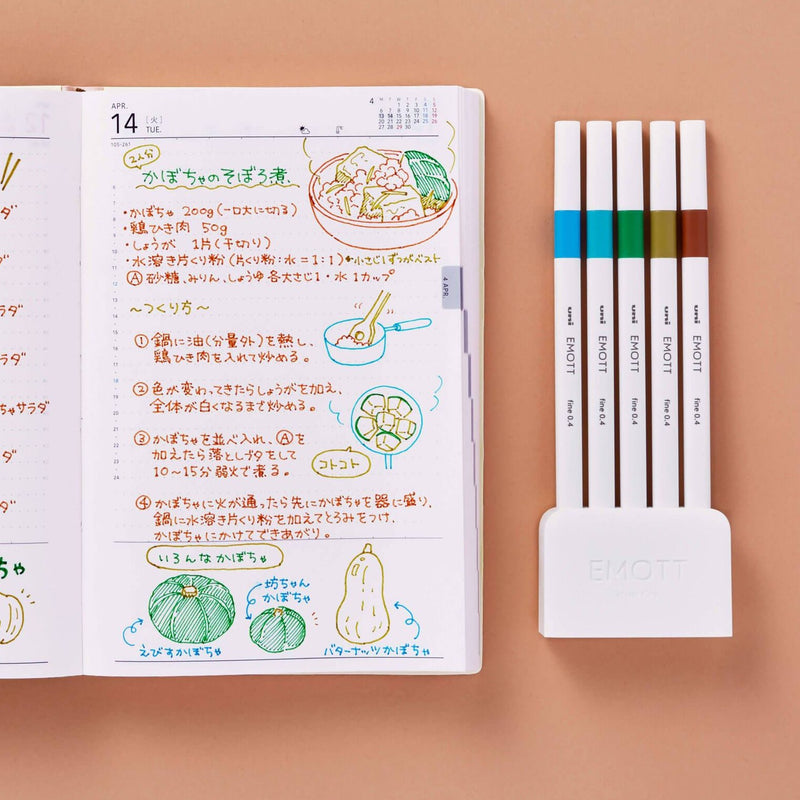 APR.
14 [火]
TUE.
105-261
4 M T W T F S S
1 2 3 4 5
6 7 8 9 10 11 12
13 14 15 16 17 18 19
20 21 22 23 24 25 26
27 28 29 30
2人分
かぼちゃのそぼろ煮、
・かぼちゃ 200g(一口大に切る)
・鶏ひき肉 50g
・しょうが 1片(千切り)
・水溶き片くり粉(片くり粉:水=1:1)←小さじ1ずつがベスト
Ⓐ砂糖、みりん、しょうゆ 各大さじ1・水1カップ
4 APR.
〜つくり方〜
①鍋に油(分量外)を熱し、
鶏ひき肉を入れて炒める。
②色が変わってきたらしょうがを加え、
全体が白くなるまで炒める。
③かぼちゃを並べ入れ、Ⓐを
加えたら落としブタをして
10〜15分弱火で煮る。
コトコト
④かぼちゃに火が通ったら先にかぼちゃを器に盛り、
鍋に水溶き片くり粉を加えてとろみをつけ、
かぼちゃにかけてできあがり。
いろんなかぼちゃ
坊ちゃん
かぼちゃ
えびすかぼちゃ
バターナッツかぼちゃ
ダ
ラダ
ラダ
ちゃサラダ
ダ
ラダ
ちゃ
uni EMOTT fine 0.4
uni EMOTT fine 0.4
uni EMOTT fine 0.4
uni EMOTT fine 0.4
uni EMOTT fine 0.4
EMOTT